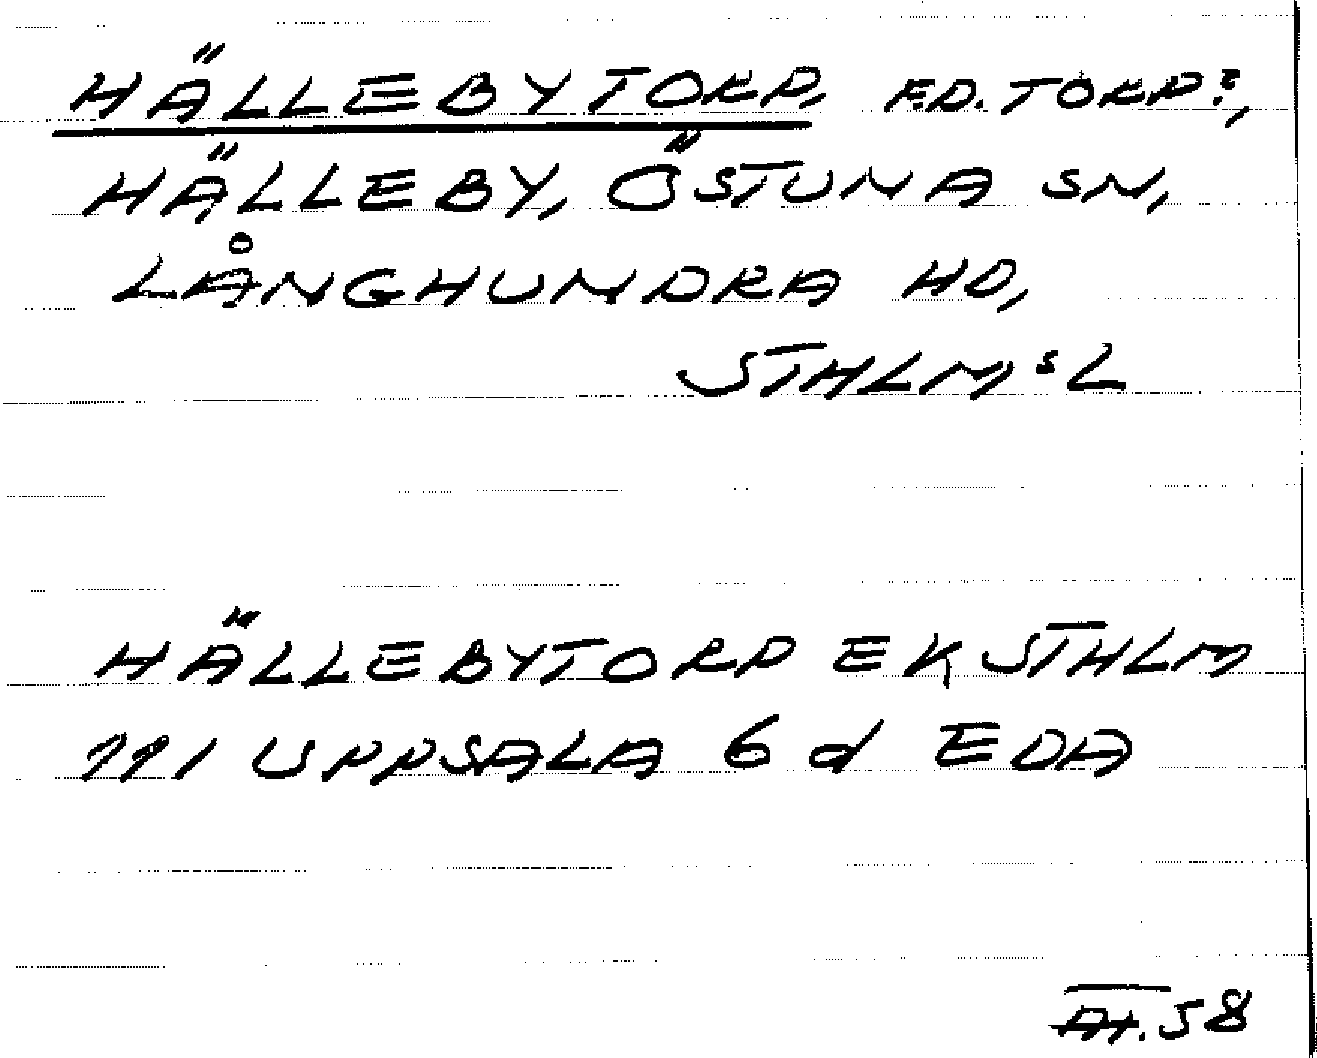 HÄLLEBYTORP, F.D. TORP?,
HÄLLEBY, ÖSTUNA SN,
LÅNGHUNDRA HD,
STHLMS L
HÄLLEBYTORP EK STHLM
111 UPPSALA 6 d EDA
58